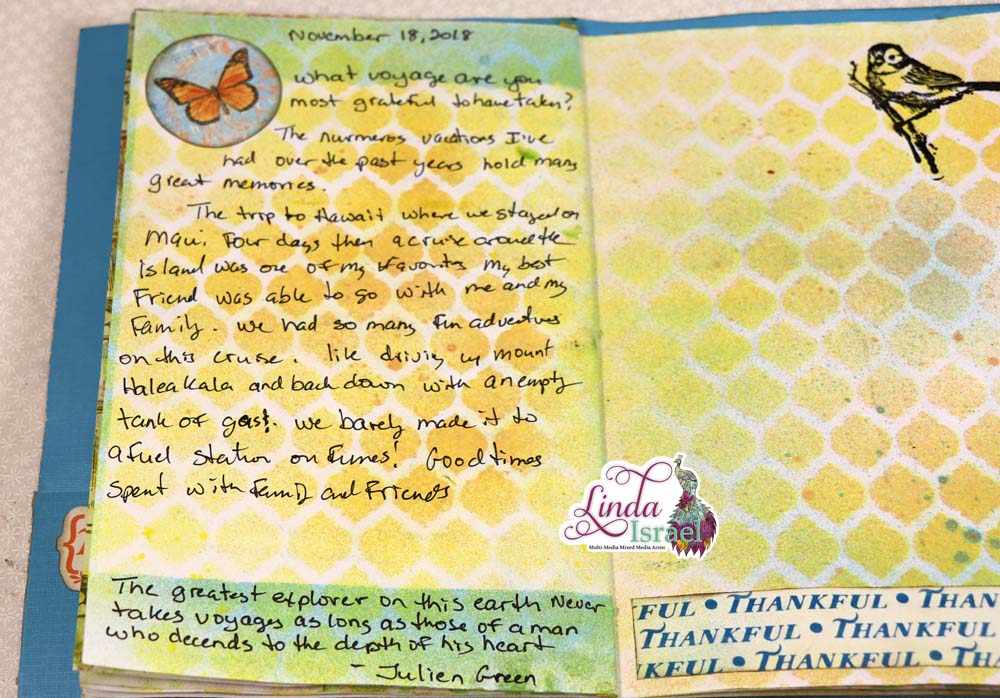 November 18, 2018
What voyage are you
most grateful to have taken?
The nurmeros vacations I've
had over the past years hold many
great memories.
The trip to Hawaii where we stayed on
Maui. Four days then a cruise around the
island was one of my favorites my best
Friend was able to go with me and my
Family. We had so many fun adventures
on this cruise. like driving up mount
Haleakala and back down with an empty
tank of gas!. We barely made it to
a fuel station on Fumes! Good times
spent with Family and Friends
The greatest explorer on this earth Never
takes voyages as long as those of a man
who decends to the depth of his heart
- Julien Green
Linda
Israel
Multi Media Mixed Media Artist
FUL • THANKFUL • THAN
THANKFUL • THANKFUL
KFUL • THANKFUL • THA